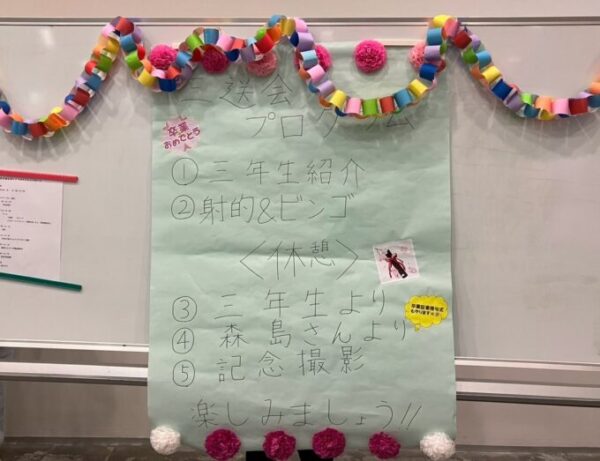 三送会
プログラム
卒業
おめでとう
①三年生紹介
②射的&ビンゴ
<休憩>
③三年生より
④森島さんより
⑤記念撮影
楽しみましょう!!